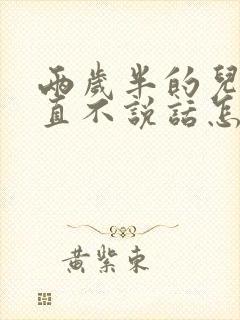 兩歲半的兒
直不説話怎
黃紫東